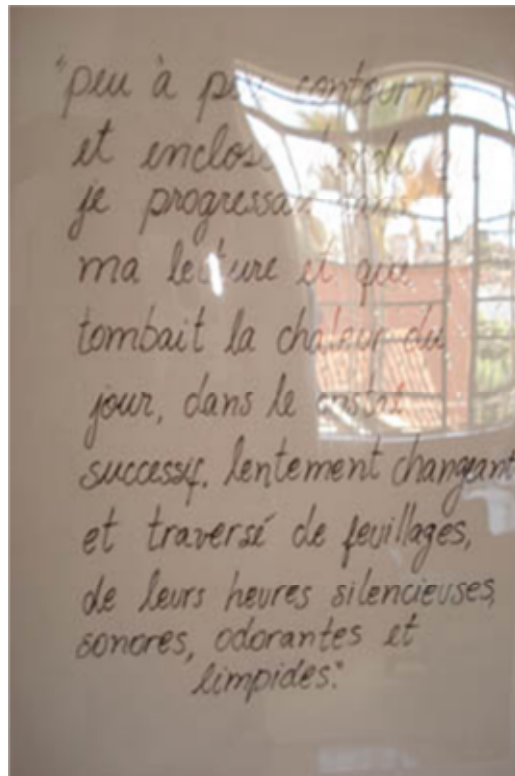 "peu à peu contourné
et enclose tandis que
je progressais dans
ma lecture et que
tombait la chaleur du
jour, dans le cristal
successif, lentement changeant
et traversé de feuillages,
de leurs heures silencieuses,
sonores, odorantes et
limpides."